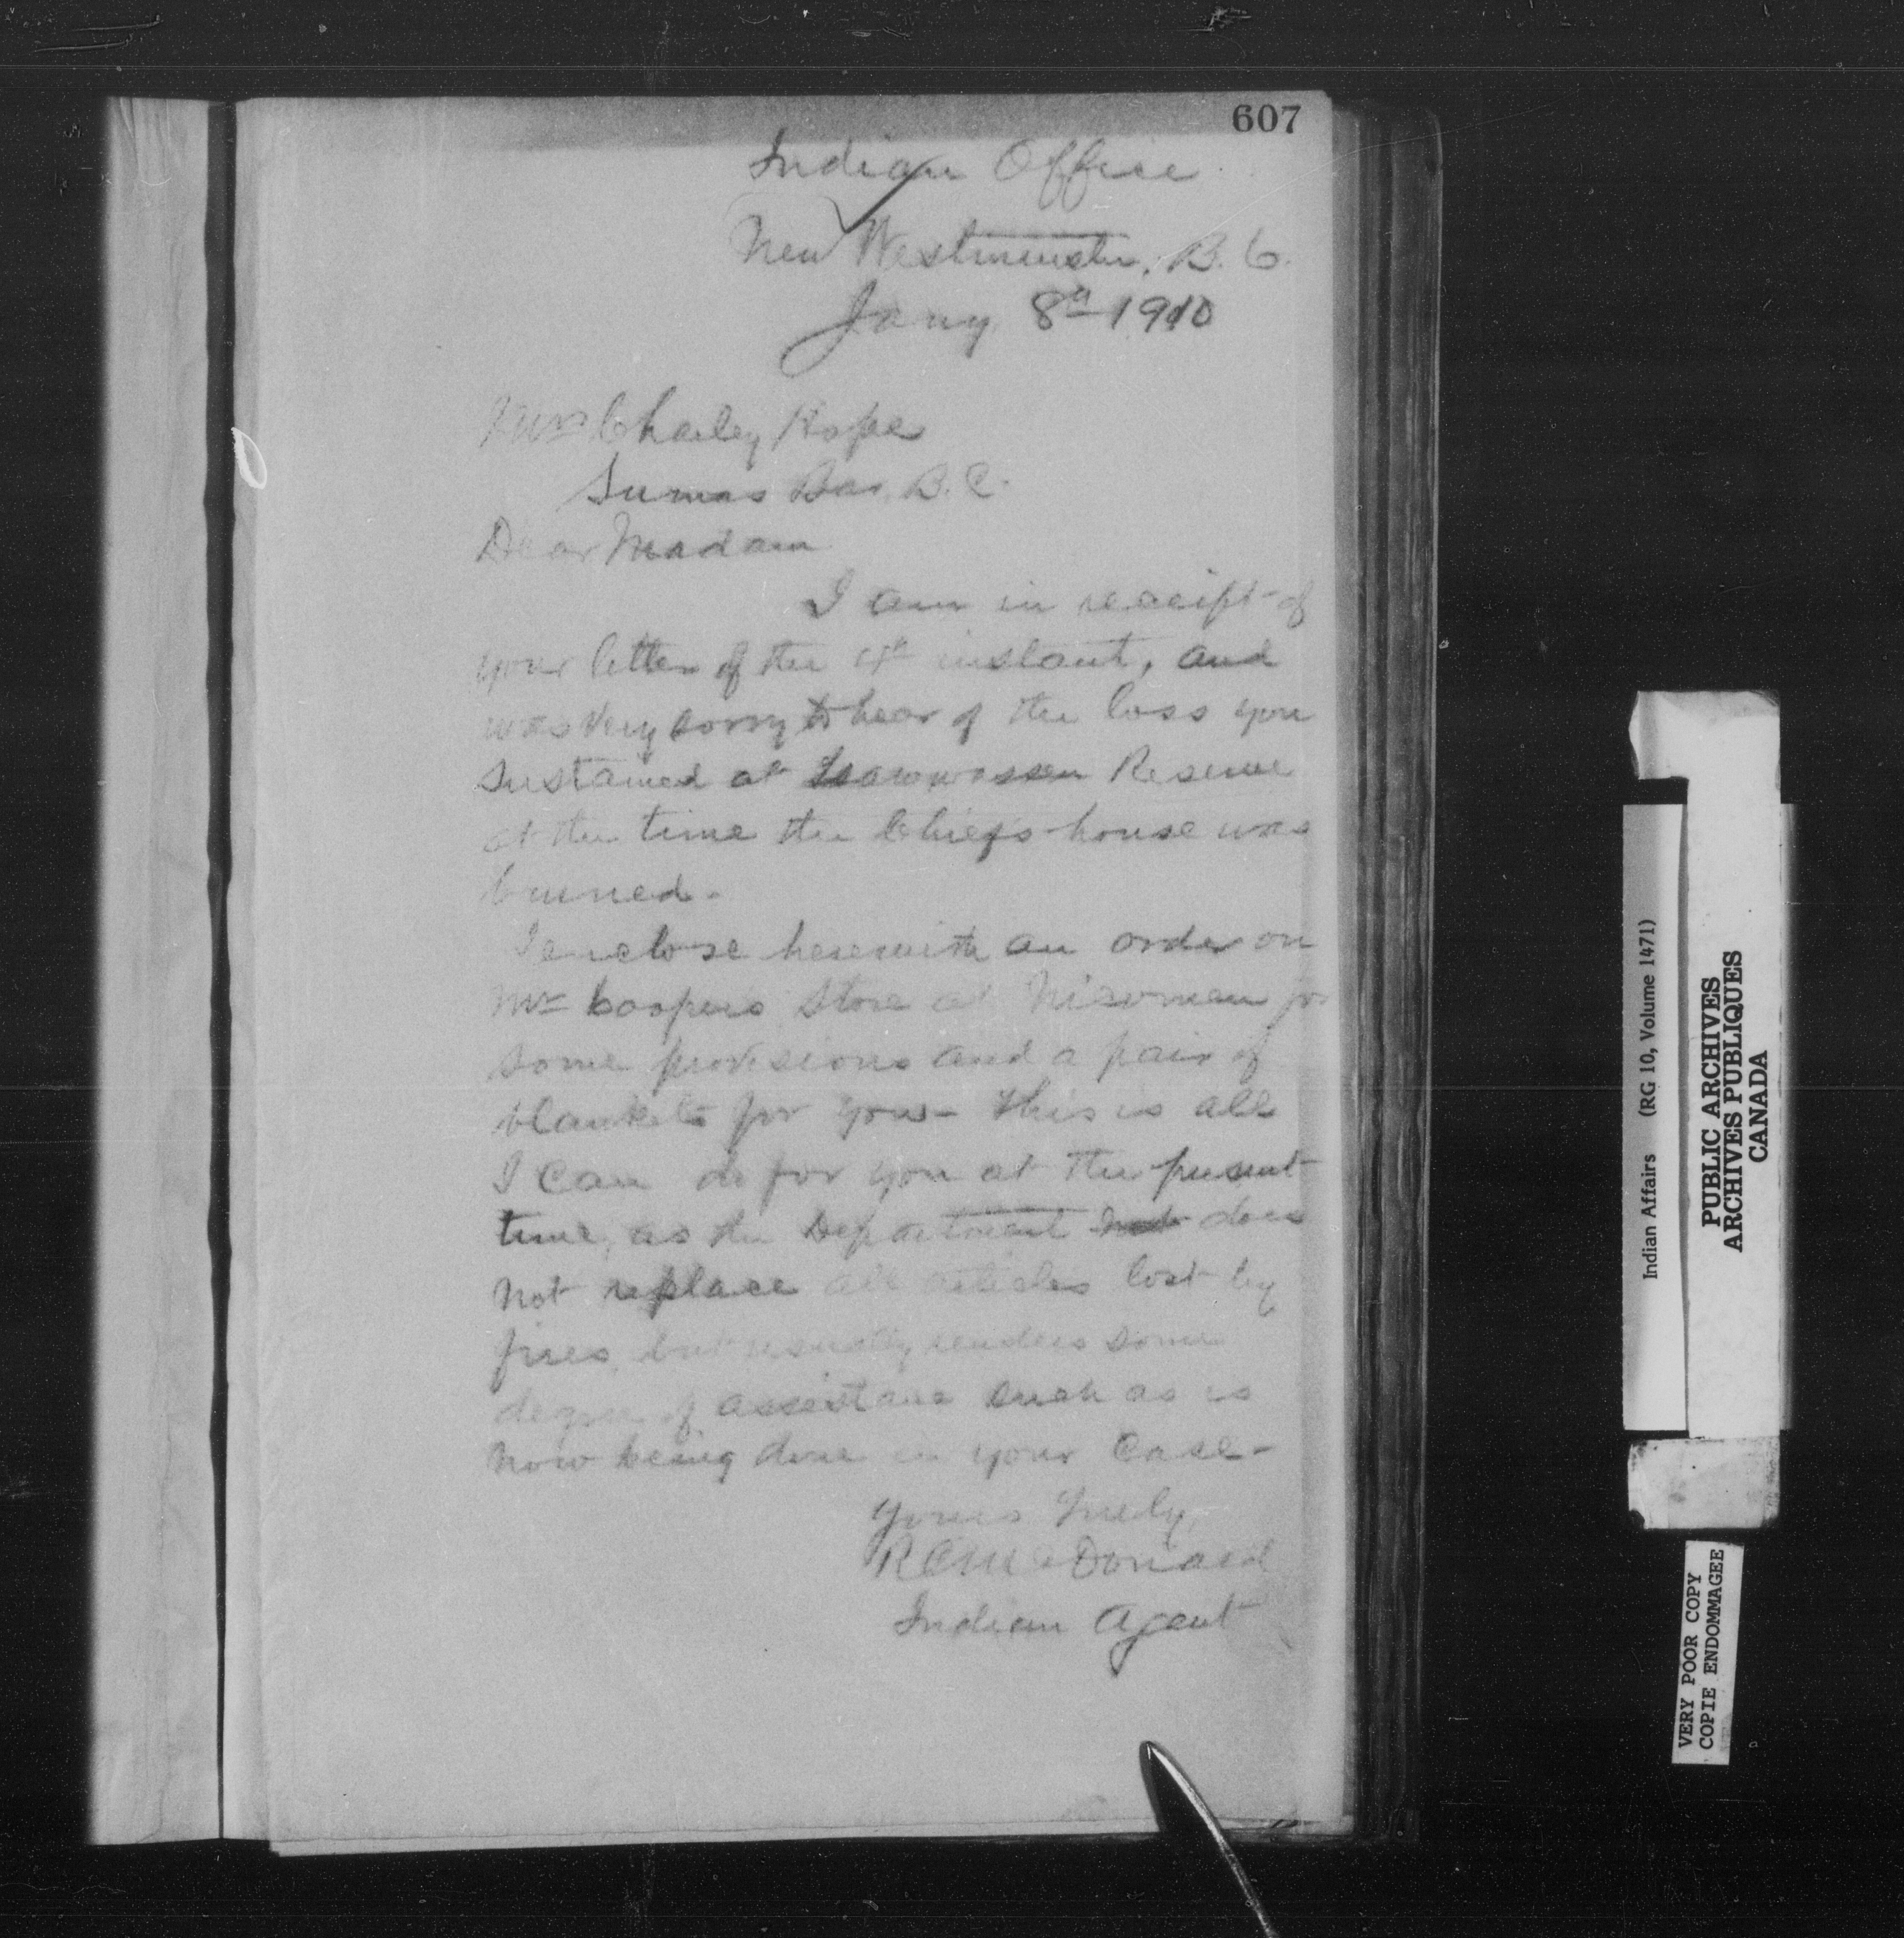 607
Indian Office
New Westminster, B.C.
Jany 8th 1910
Mrs Charley Hope
Sumas Bar, B.C.
Dear Madam
I am in receipt of
your letter of the 4th instant, and
was very sorry to hear of the loss you
sustained at Tsawwassen Reserve
at the time the Chief's house was
burned.
I enclose herewith an order on
Mr Cooper's Store at Nicomen for
some provisions and a pair of
blankets for you - this is all
I can do for you at the present
time, as the Department not does
not replace all articles lost by
fires, but usually renders some
degree of assistance such as is
now being done in your case -
Yours truly,
R C McDonald
Indian Agent
Indian Affairs (RG 10, Volume 1471)
PUBLIC ARCHIVES
ARCHIVES PUBLIQUES
CANADA
VERY POOR COPY
COPIE ENDOMMAGEE